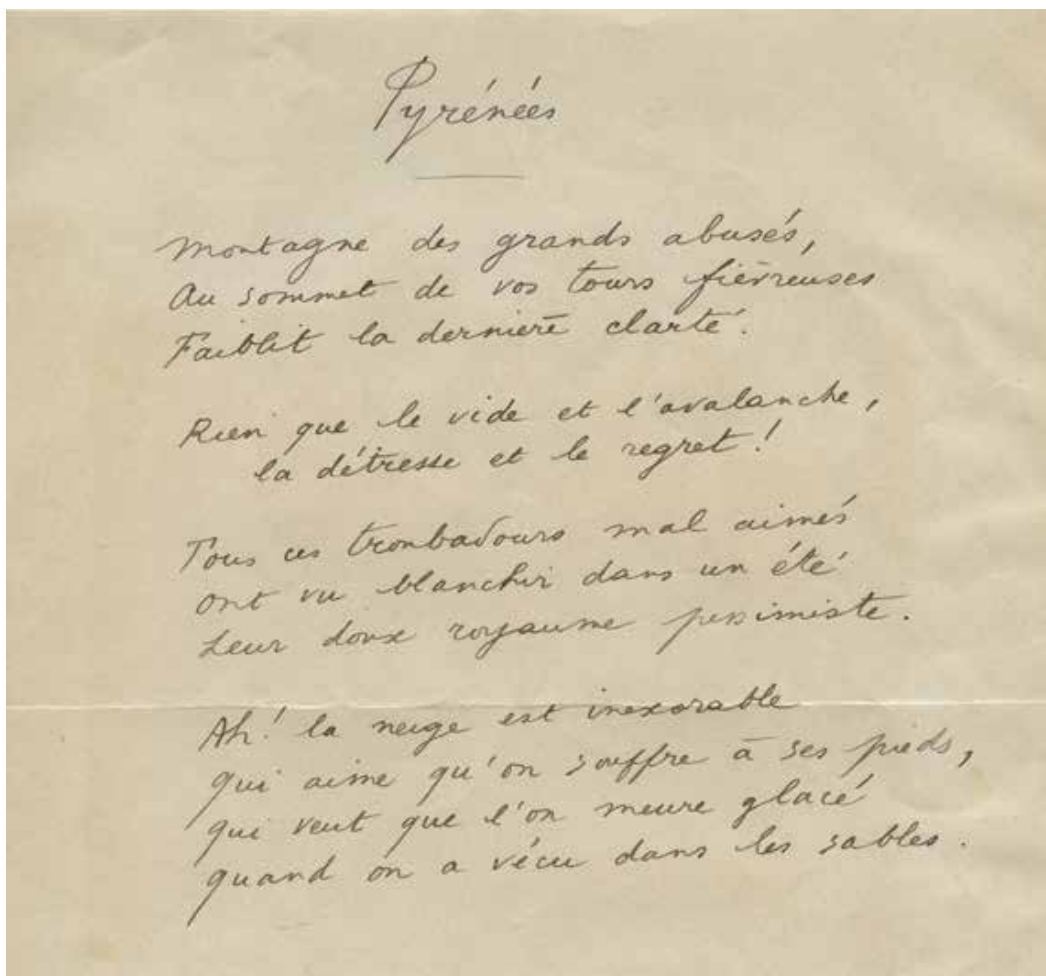 Pyrénées
Montagne des grands abusés,
Au sommet de vos tours fiévreuses
Faiblit la dernière clarté.
Rien que le vide et l'avalanche,
la détresse et le regret!
Tous ces troubadours mal aimés
ont vu blanchir dans un été
Leur doux royaume pessimiste.
Ah! la neige est inexorable
qui aime qu'on souffre à ses pieds,
qui veut que l'on meure glacé
quand on a vécu dans les sables.